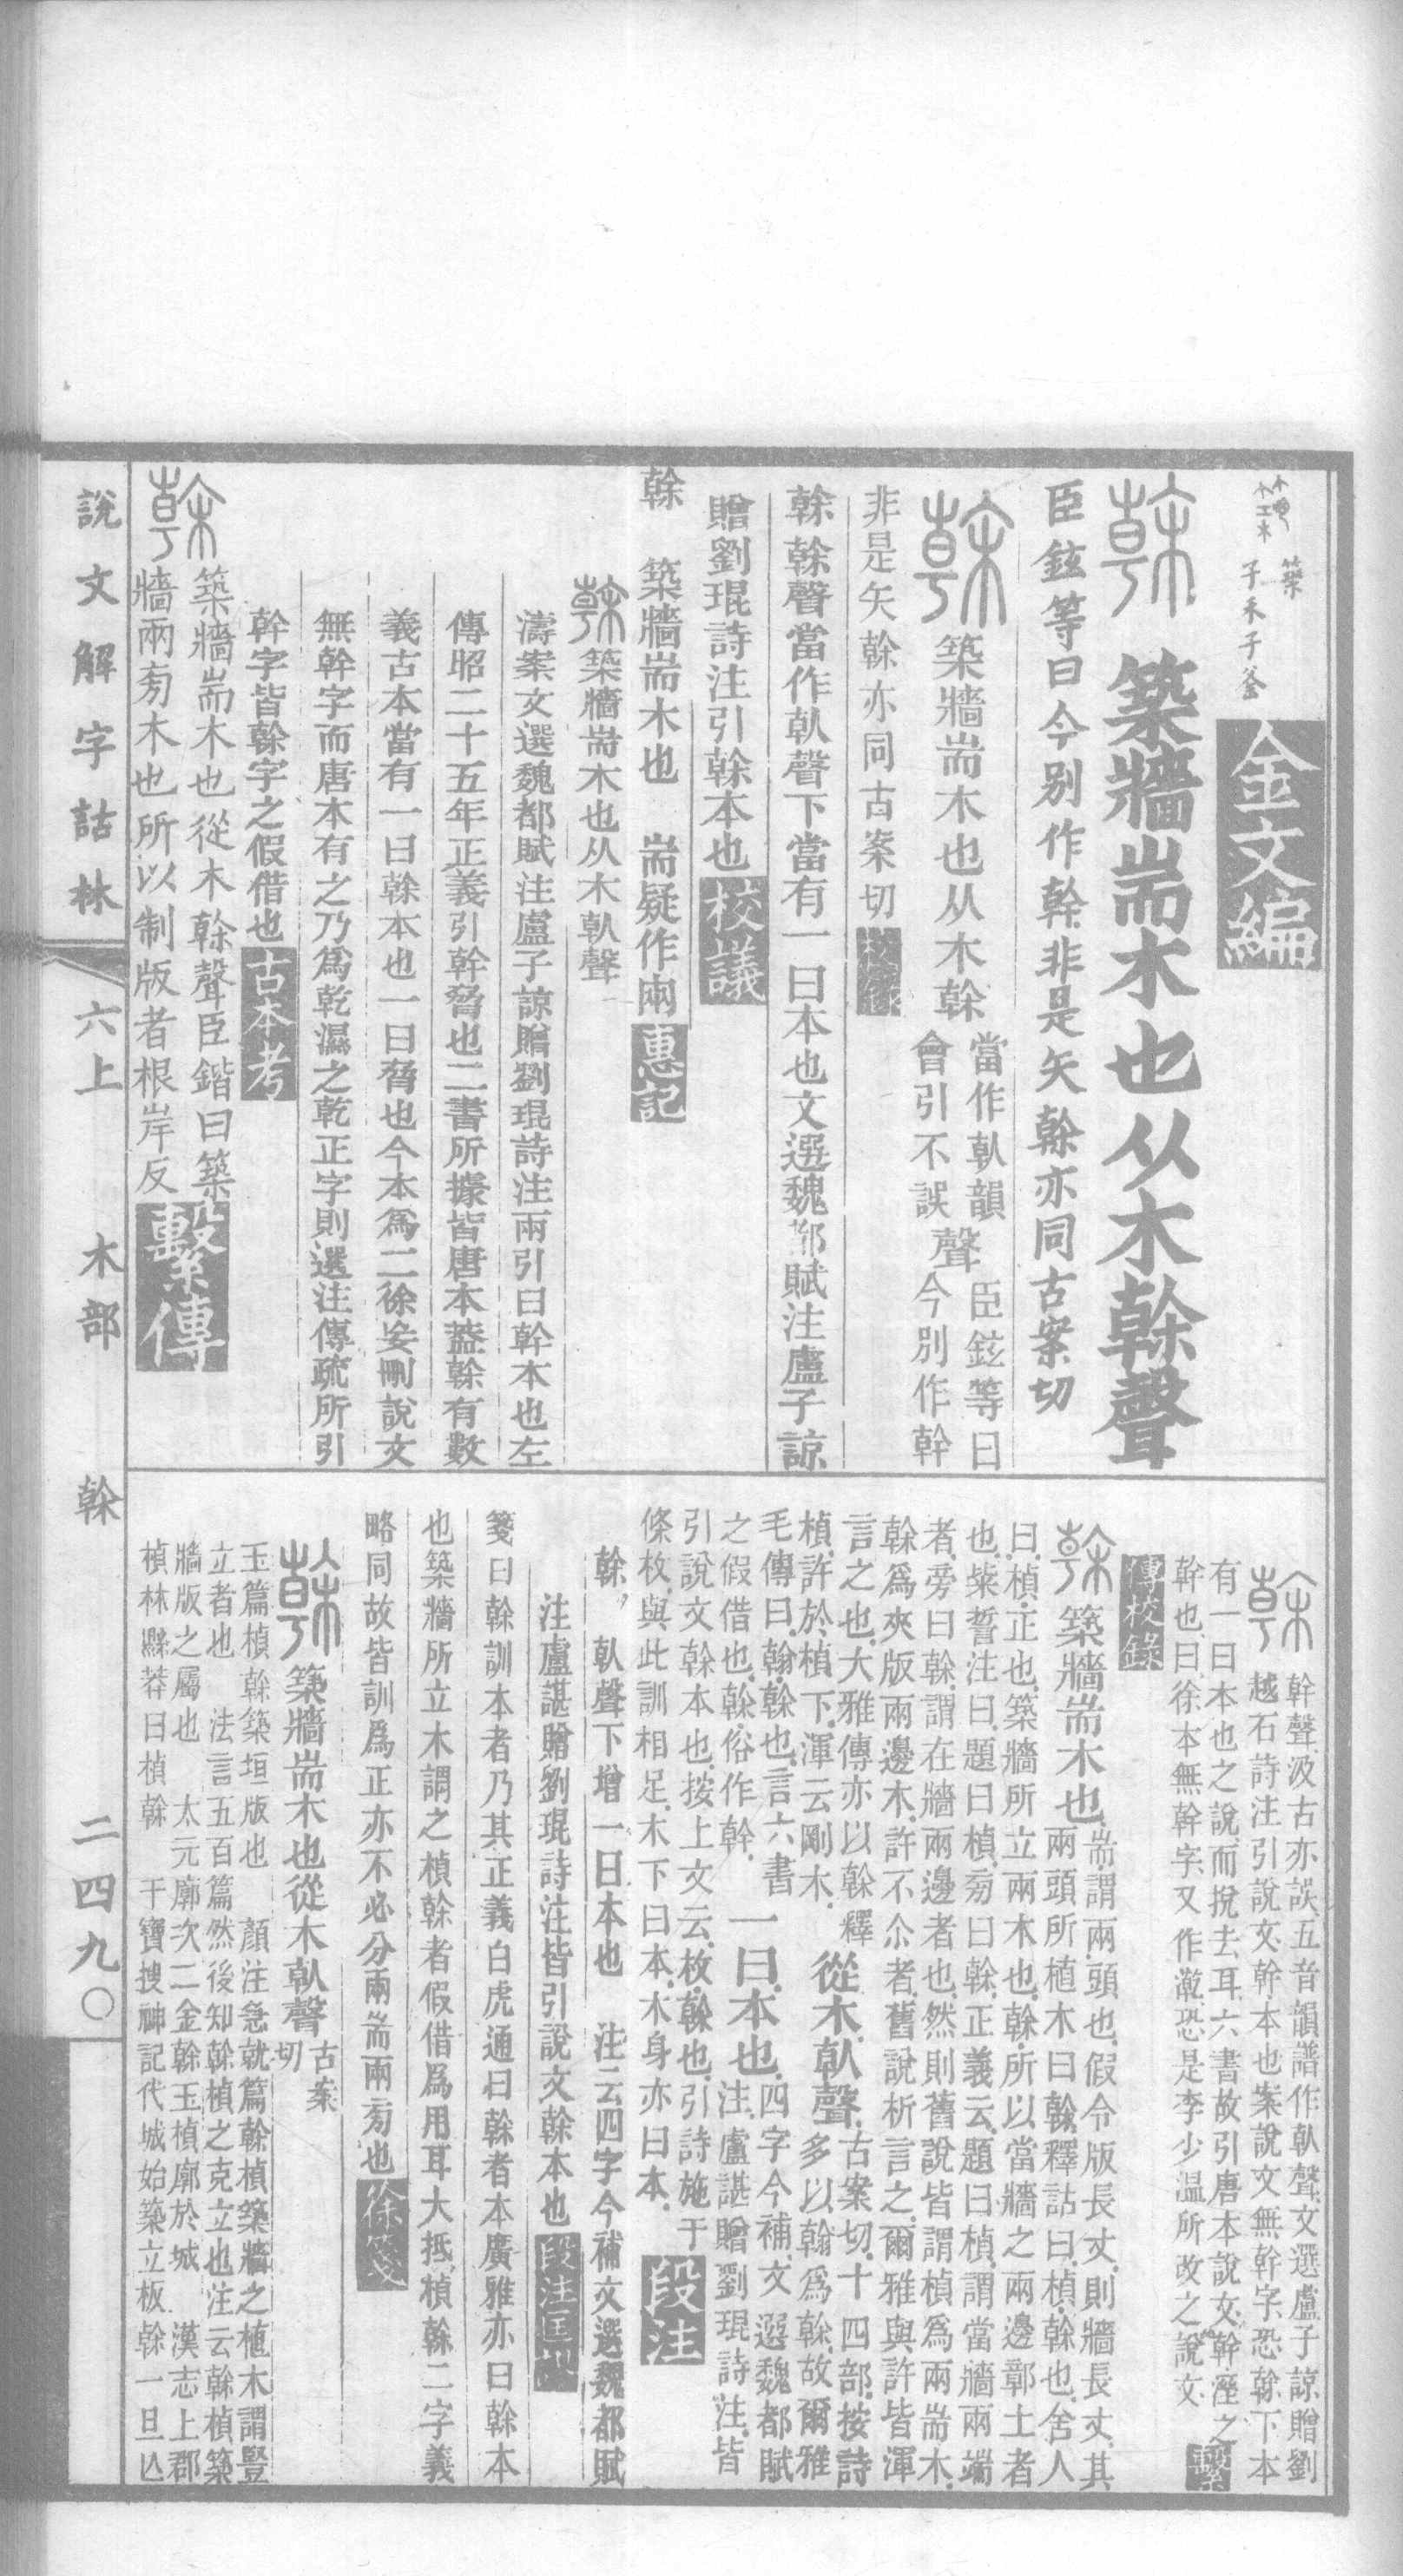 築
子禾子釜
金文編
築牆耑木也从木榦聲
臣鉉等曰今別作幹非是矢榦亦同古案切
築牆耑木也从木榦當作倝韻會引不誤聲臣鉉等曰今別作幹
非是矢榦亦同古案切校錄
榦榦聲當作倝聲下當有一曰本也文選魏都賦注盧子諒
贈劉琨詩注引榦本也校議
榦 築牆耑木也 耑疑作兩惠記
築牆耑木也从木倝聲
濤案文選魏都賦注盧子諒贈劉琨詩注兩引曰幹本也左
傳昭二十五年正義引幹脅也二書所據皆唐本葢榦有數
義古本當有一曰榦本也一曰脅也今本為二徐妄刪說文
無幹字而唐本有之乃為乾濕之乾正字則選注傳疏所引
幹字皆榦字之假借也古本考
築牆耑木也從木榦聲臣鍇曰築
牆兩旁木也所以制版者根岸反繫傳
榦聲汲古亦誤五音韻譜作倝聲文選盧子諒贈劉
越石詩注引說文幹本也案說文無幹字恐榦下本
有一曰本也之說而挩去耳六書故引唐本說文幹溼之
幹也曰徐本無幹字又作澣恐是李少溫所改之說文繫
傳校錄
築牆耑木也耑謂兩頭也假令版長丈則牆長丈其
兩頭所植木曰榦釋詁曰楨榦也舍人
曰楨正也築牆所立兩木也榦所以當牆之兩邊鄣土者
也柴誓注曰題曰楨旁曰榦正義云題曰楨謂當牆兩端
者旁曰榦謂在牆兩邊者也然則舊說皆謂楨為兩耑木
榦為夾版兩邊木許不尒者舊說析言之爾雅與許皆渾
言之也大雅傳亦以榦釋
楨許於楨下渾云剛木從木倝聲古案切十四部按詩
多以翰為榦故爾雅
毛傳曰翰榦也言六書
之假借也榦俗作幹一曰本也四字今補文選魏都賦
注盧諶贈劉琨詩注皆
引說文榦本也按上文云枚榦也引詩施于
條枚與此訓相足木下曰本木身亦曰本段注
榦 倝聲下增一曰本也 注云四字今補文選魏都賦
注盧諶贈劉琨詩注皆引說文榦本也段注匡謬
箋曰榦訓本者乃其正義白虎通曰榦者本廣雅亦曰榦本
也築牆所立木謂之楨榦者假借為用耳大抵楨榦二字義
略同故皆訓為正亦不必分兩耑兩旁也徐箋
築牆耑木也從木倝聲古案切
玉篇楨榦築垣版也 顏注急就篇榦楨築牆之植木謂豎
立者也 法言五百篇然後知榦楨之克立也注云榦楨築
牆版之屬也 太元廓次二金榦玉楨廓於城 漢志上郡
楨林縣莽曰楨榦 干寶搜神記代城始築立板榦一旦亾
說文解字詁林 六上 木部 榦 二四九〇